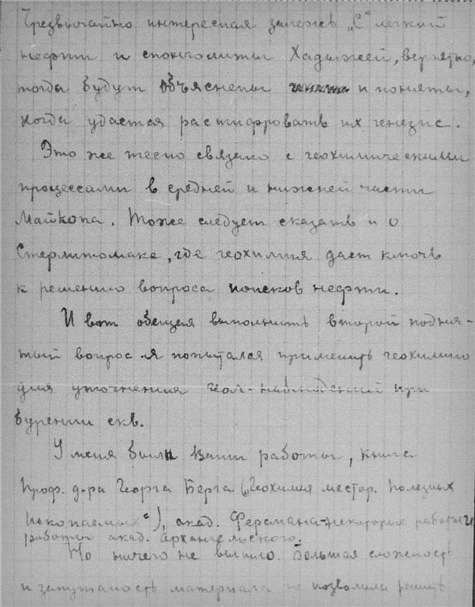 Чрезвычайно интересная залежь „С“ легкой
нефти и спонголиты Хадыжей, вероятно,
тогда будут объяснены и поняты,
когда удастся расшифровать их генезис.
Это же тесно связано с геохимическими
процессами в средней и нижней части
Майкопа. Тоже следует сказать и о
Стерлитомаке, где геохимия даст ключ
к решению вопроса поисков нефти.
И вот обещая выполнить второй подня-
тый вопрос я попытался применить геохимию
для уточнения геол-наблюдений при
бурении скв.
У меня были Ваши работы, книга
проф. д-ра Георга Берга („Геохимия местор. полезных
ископаемых“), акад. Ферсмана-некоторые работы и
работы акад. Архангельского.
Но ничего не вышло. Большая сложность
и запутаность материала не позволили решить